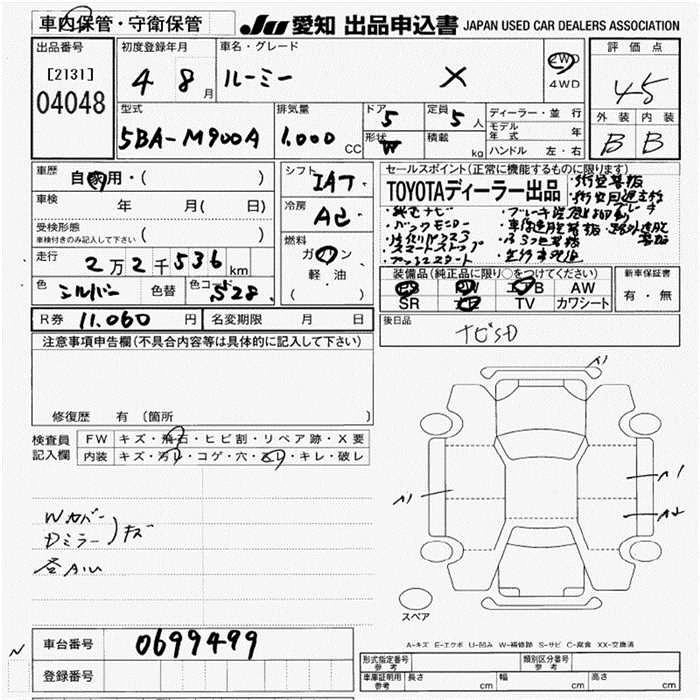 車内保管・守衛保管
JU 愛知 出品申込書 JAPAN USED CAR DEALERS ASSOCIATION
出品番号
[2131]
04048
初度登録年月
4 8 月
車名・グレード
ルーミー X
2WD
4WD
評価点
4.5
外装 内装
B B
型式
5BA-M900A
排気量
1,000 CC
ドア
5
形状
定員
5 人
積載 kg
ディーラー・並行
モデル年式 年
ハンドル 左・右
車歴 自家用・( )
車検 年 月( 日)
受検形態
車検付きのみ記入して下さい ( )
走行 2万2千536 km
色 シルバー 色替 色コード S28
シフト
IAT
冷房
AC
燃料
ガソリン
軽・油
( )
セールスポイント(正常に機能するものに限ります)
TOYOTAディーラー出品
・純正ナビ
・バックモニター
装備品(純正品に限り○をつけてください)
PS PW エアB AW
SR ナビ TV カワシート
新車保証書
有・無
R券 11,060 円 名変期限 月 日
後日品
ナビSD
注意事項申告欄(不具合内容等は具体的に記入して下さい)
修復歴 有(箇所 )
検査員記入欄
FW キズ・飛石・ヒビ割・リペア跡・X要
内装 キズ・汚レ・コゲ・穴・スレ・キレ・破レ
Wカバー
Dミラー )キズ
A1
A1
A1
A2
スペア
A-キズ E-エクボ U-凹み W-補修跡 S-サビ C-腐食 XX-交換済
N
車台番号 0699499
登録番号
形式指定番号 参考
類別区分番号 参考
車庫証明用 参考 長さ cm 幅 cm 高さ cm